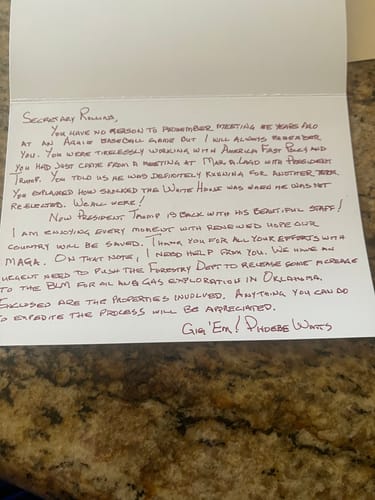 Secretary Rollins,
You have no reason to remember meeting me years ago
at an Aggie baseball game but I will always remember
you. You were tirelessly working with America First Policy and
you had just come from a meeting at Mar.a.Lago with President
Trump. You told us he was definitely running for another term.
You explained how shocked the White House was when he was not
re-elected. We all were!
Now President Trump is back with his beautiful staff!
I am enjoying every moment with renewed hope our
country will be saved. Thank you for all your efforts with
MAGA. On that note, I need help from you. We have an
urgent need to push the Forestry Dept to release some acreage
to the BLM for oil and gas exploration in Oklahoma.
Enclosed are the properties involved. Anything you can do
to expedite the process will be appreciated.
Gig 'Em! Phoebe Watts